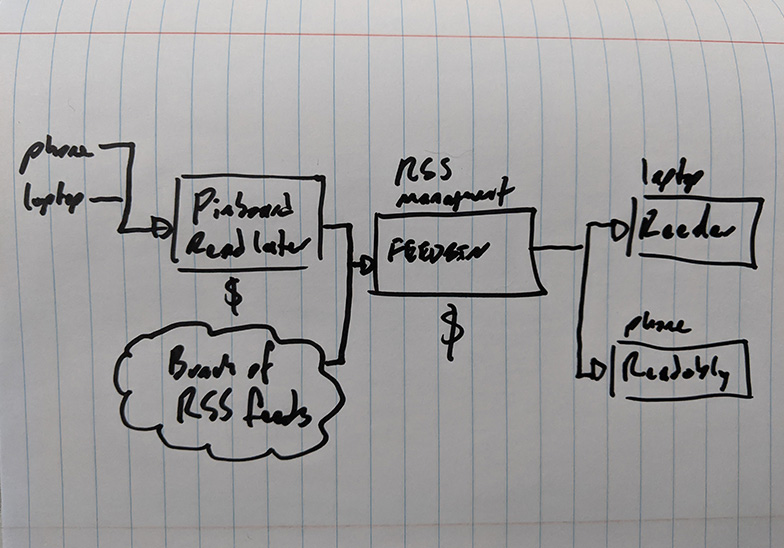 phone
laptop
Pinboard
Read Later
$
Bunch of
RSS feeds
RSS
managment
FEEDBIN
$
laptop
Reeder
phone
Readably